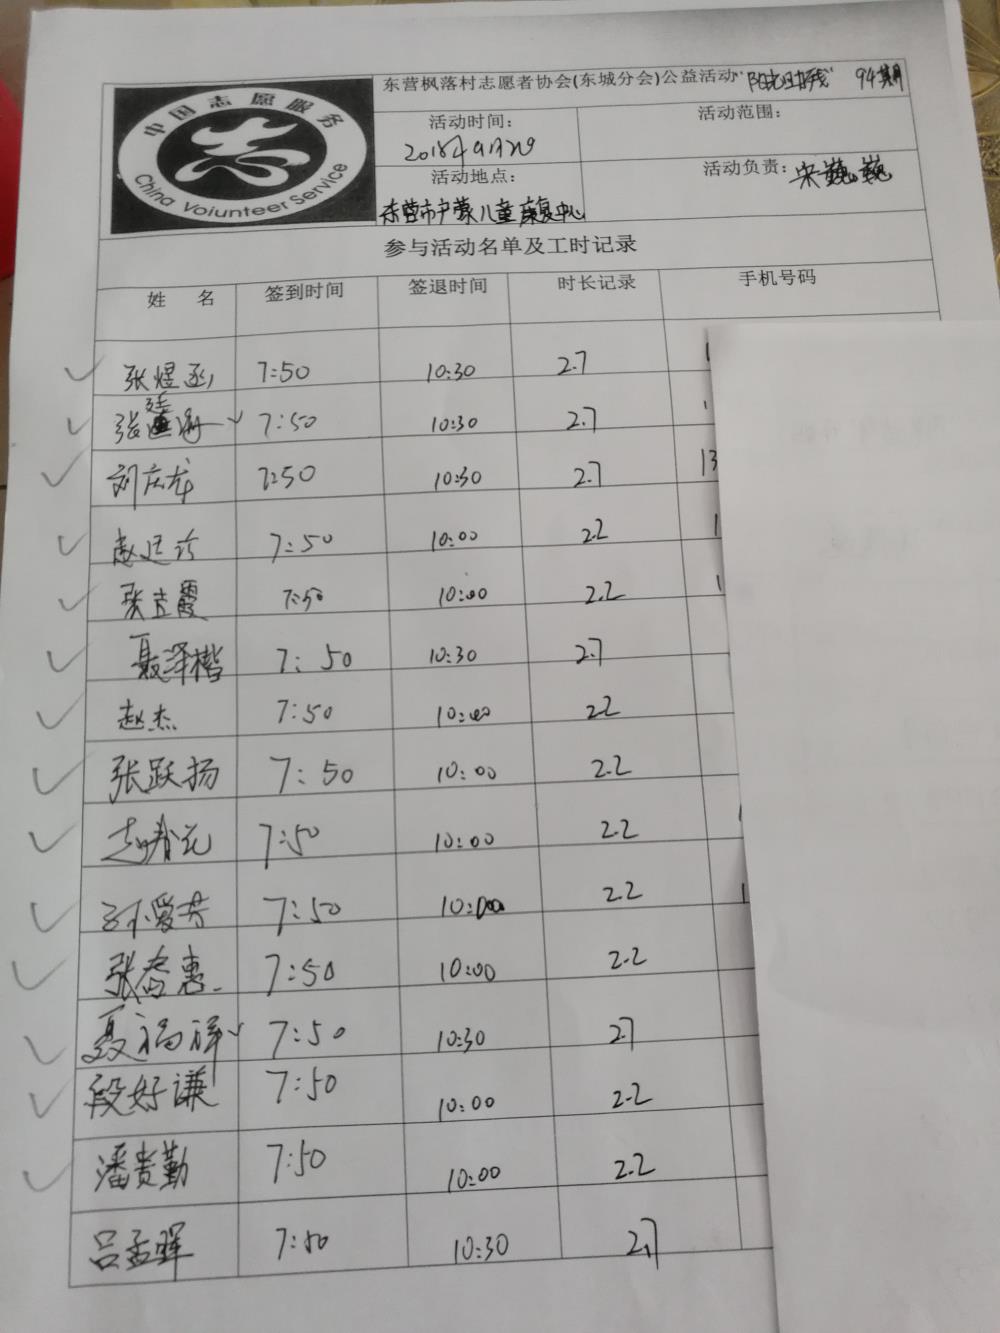 东营枫落村志愿者协会(东城分会)公益活动"阳光助残" 94期
中国志愿服务
China Voiunteer Service
活动时间: 2018年9月29
活动范围:
活动地点: 东营市户蒙儿童康复中心
活动负责: 宋巍巍
参与活动名单及工时记录
姓 名 签到时间 签退时间 时长记录 手机号码
张煜函 7:50 10:30 2.7
张 7:50 10:30 2.7
刘庆龙 7:50 10:30 2.7 13
赵 7:50 10:00 2.2 1
张立霞 7:50 10:00 2.2 1
聂泽楷 7:50 10:30 2.7
赵杰 7:50 10:00 2.2
张跃扬 7:50 10:00 2.2
赵春元 7:50 10:00 2.2
孙爱芳 7:50 10:00 2.2 1
张春惠 7:50 10:00 2.2
聂福祥 7:50 10:30 2.7
段好谦 7:50 10:00 2.2
潘贵勤 7:50 10:00 2.2
吕孟晖 7:50 10:30 2.7